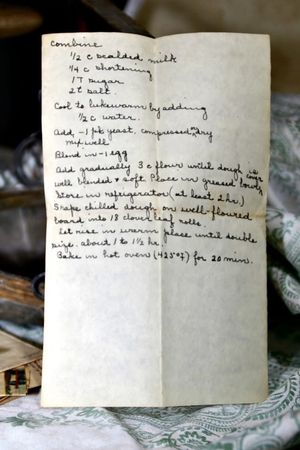 Combine
1/2 c scalded milk
1/4 c shortening
1 T sugar
2 t salt.
Cool to lukewarm by adding
1/2 c water.
Add, -1 pk yeast, compressed or dry
mix well
Blend in - 1 egg
Add gradually 3 c flour until dough is
well blended & soft. Place in greased bowl, cover
Store in refrigerator (at least 2 hr)
Shape chilled dough on well-floured
board into 18 clover leaf rolls.
Let rise in warm place until double
size. about 1 to 1 1/2 hr
Bake in hot oven (425°F) for 20 min.